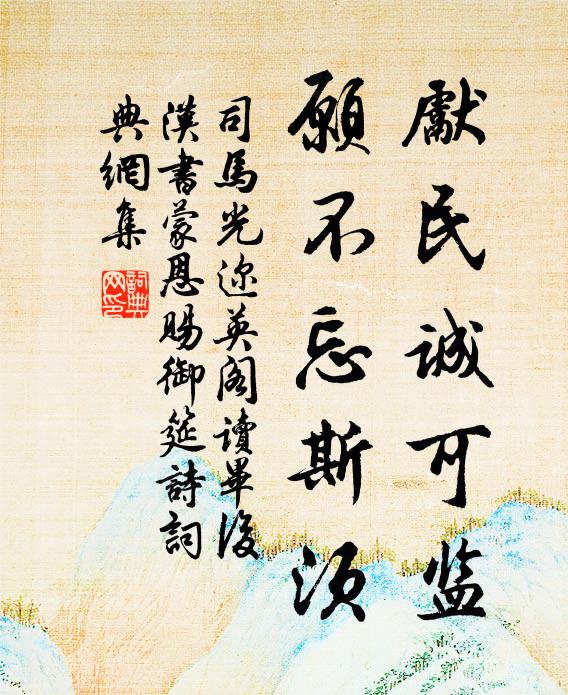 獻民誠可监
願不忘斯须
司馬光迩英阁讀畢後
漢書蒙恩賜御筵詩詞
典網集
詞典网印